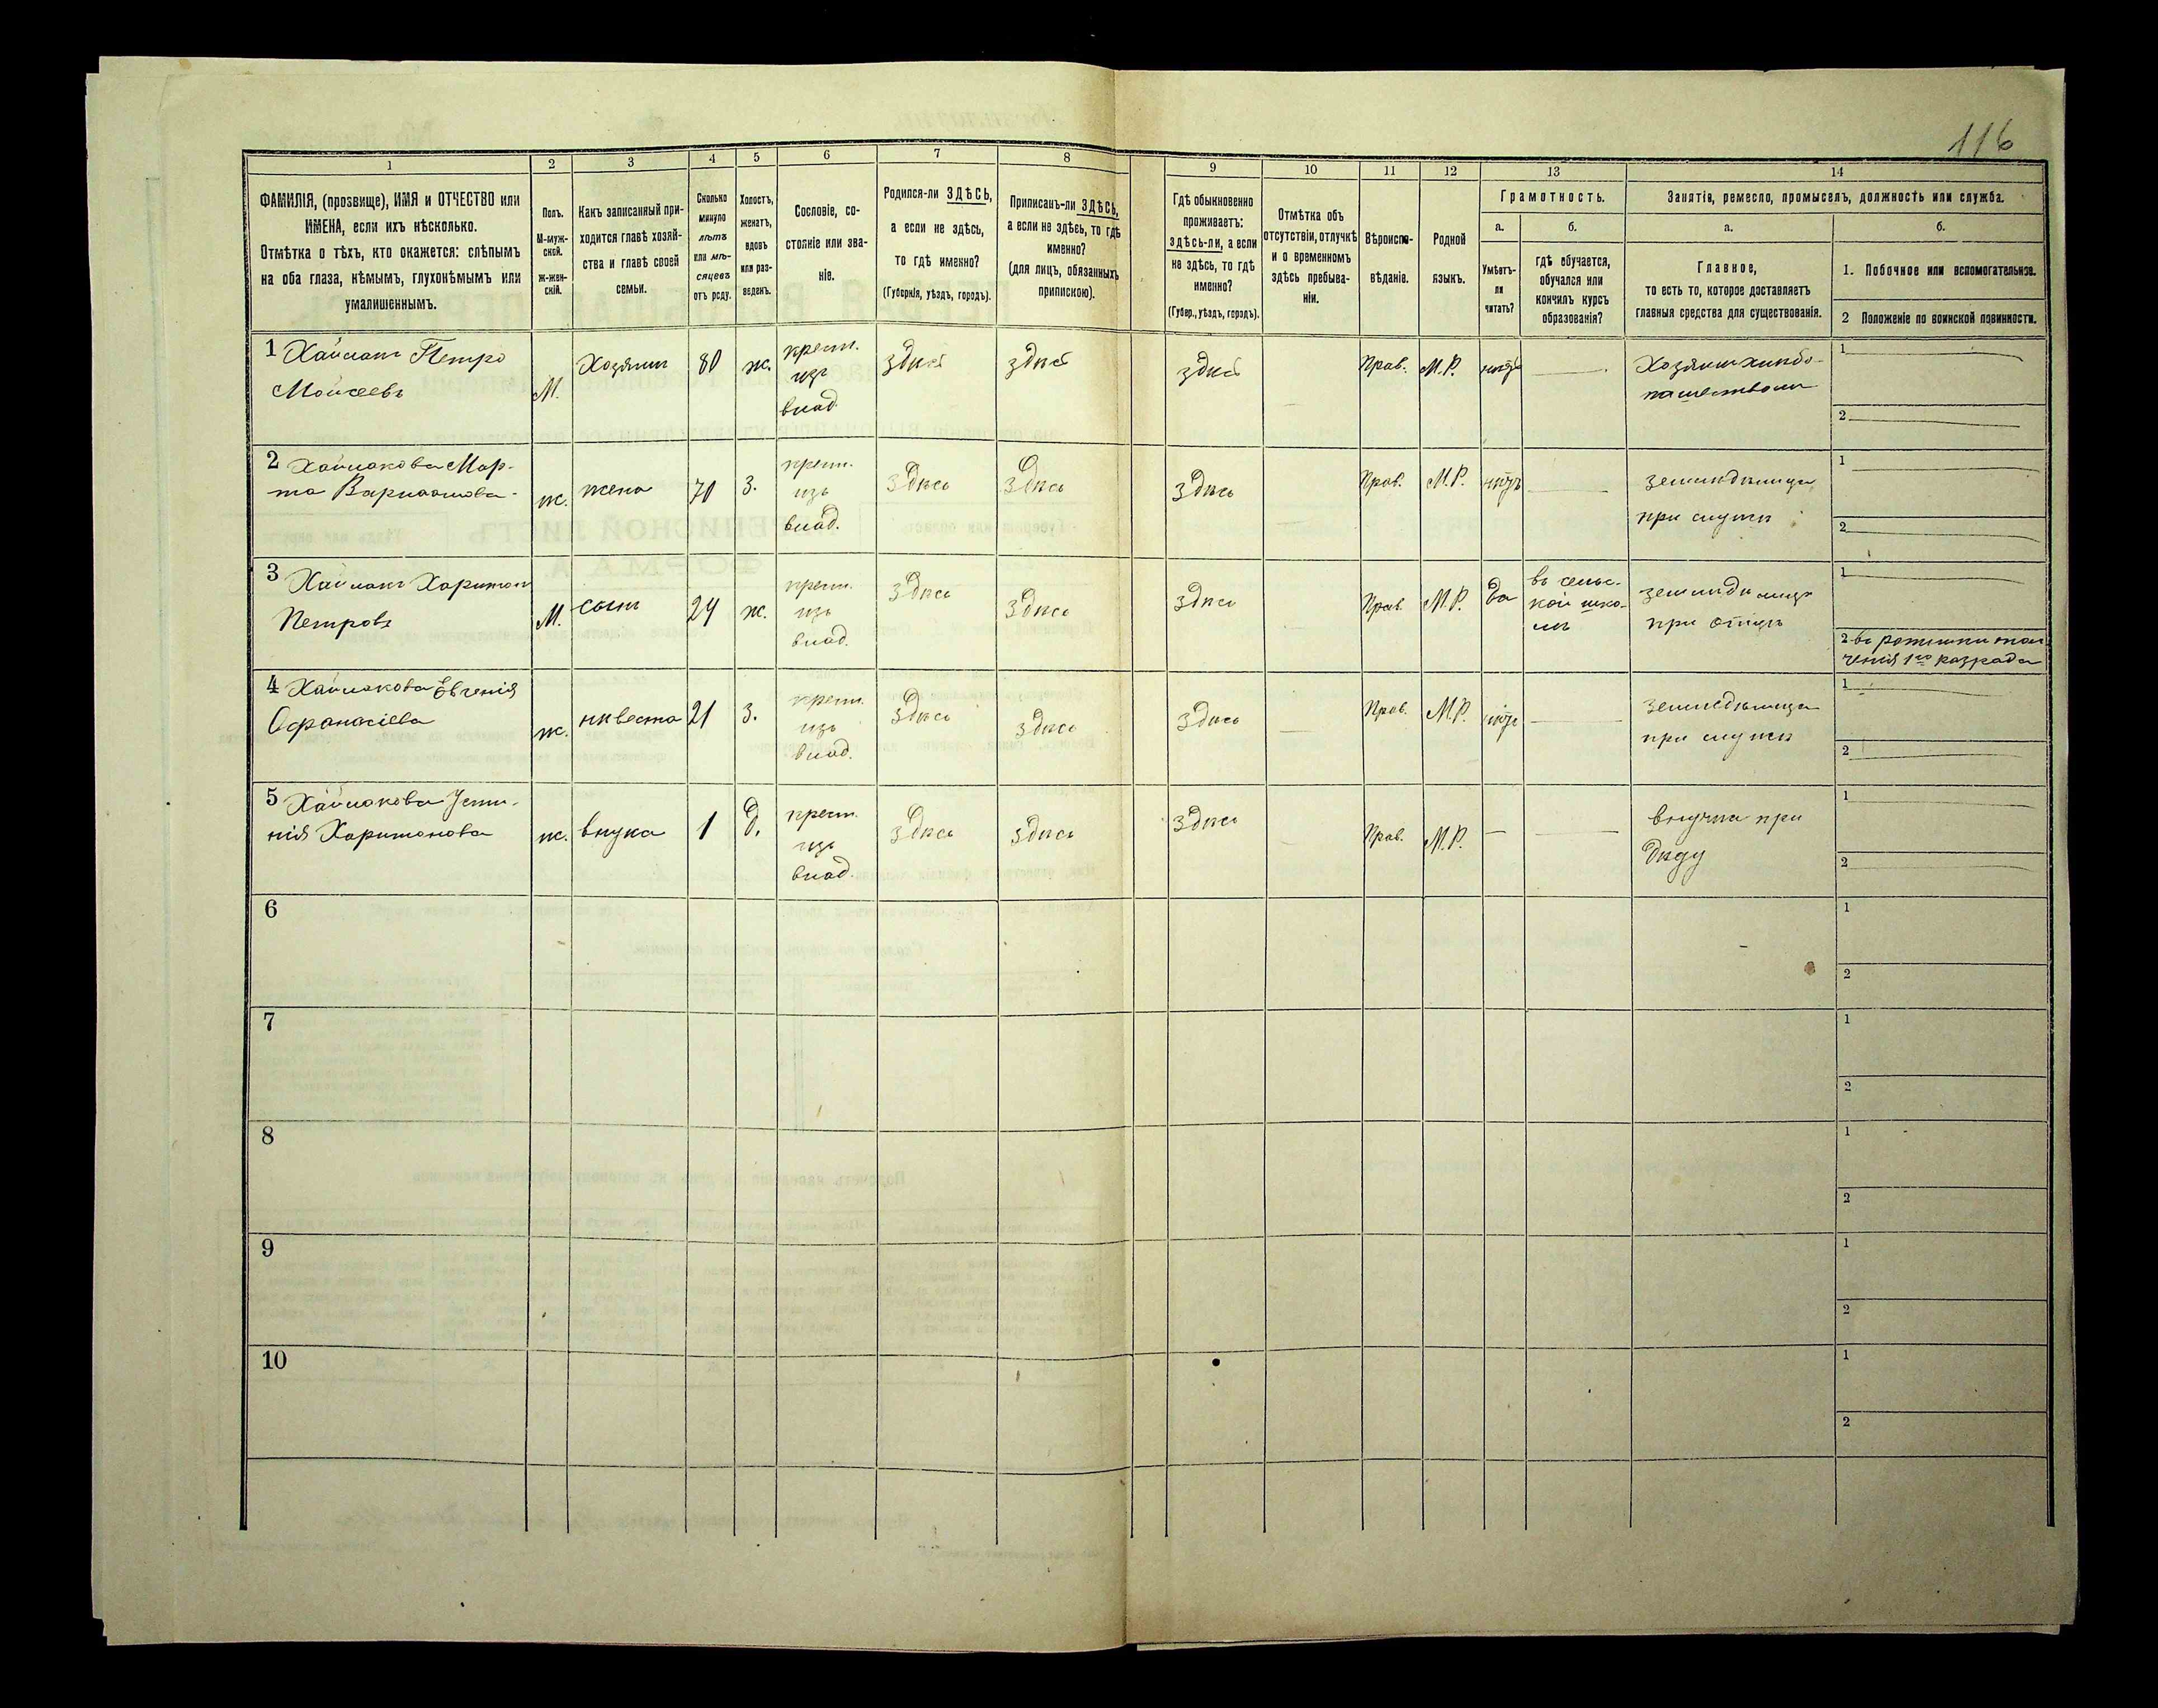 116
1 2 3 4 5 6 7 8 9 10 11 12 13 14
ФАМИЛІЯ, (прозвище), ИМЯ и ОТЧЕСТВО или
ИМЕНА, если ихъ нѣсколько.
Отмѣтка о тѣхъ, кто окажется: слѣпымъ
на оба глаза, нѣмымъ, глухонѣмымъ или
умалишеннымъ.
Полъ.
М-муж-
ской.
ж-жен-
скій.
Какъ записанный при-
ходится главѣ хозяй-
ства и главѣ своей
семьи.
Сколько
минуло
лѣтъ
или мѣ-
сяцевъ
отъ роду.
Холостъ,
женатъ,
вдовъ
или раз-
веденъ.
Сословіе, со-
стояніе или зва-
ніе.
Родился-ли ЗДѢСЬ,
а если не здѣсь,
то гдѣ именно?
(Губернія, уѣздъ, городъ).
Приписанъ-ли ЗДѢСЬ,
а если не здѣсь, то гдѣ
именно?
(для лицъ, обязанныхъ
припискою).
Гдѣ обыкновенно
проживаетъ:
здѣсь-ли, а если
не здѣсь, то гдѣ
именно?
(Губер., уѣздъ, городъ).
Отмѣтка объ
отсутствіи, отлучкѣ
и о временномъ
здѣсь пребыва-
ніи.
Вѣроиспо-
вѣданіе.
Родной
языкъ.
Грамотность.
а.
Умѣетъ-
ли
читать?
б.
гдѣ обучается,
обучался или
кончилъ курсъ
образованія?
Занятія, ремесло, промыселъ, должность или служба.
а.
Главное,
то есть то, которое доставляетъ
главныя средства для существованія.
б.
1. Побочное или вспомогательное.
2 Положеніе по воинской повинности.
1 Хаймакъ Петро
Моисеевъ
М.
Хозяинъ
80
ж.
крест.
изъ
влад.
здѣсь
здѣсь
здѣсь
Прав.
М.Р.
нѣтъ
Хозяинъ хлѣбо-
пашествомъ
1
2
2 Хаймакова Мар-
та
ж.
жена
70
З.
крест.
изъ
влад.
здѣсь
здѣсь
здѣсь
Прав.
М.Р.
нѣтъ
земледѣлица
при мужѣ
1
2
3 Хаймакъ Харитонъ
Петровъ
М.
сынъ
24
ж.
крест.
изъ
влад.
здѣсь
здѣсь
здѣсь
Прав.
М.Р.
да
въ сельс-
кой шко-
лѣ
при отцѣ
1
2 въ ратники опол
ченія 1го разряда
4 Хаймакова Евгенія
Афанасіева
ж.
нивеста
21
З.
крест.
изъ
влад.
здѣсь
здѣсь
здѣсь
Прав.
М.Р.
нѣтъ
земледѣлица
при мужѣ
1
2
5 Хаймакова Усти-
нія Харитонова
ж.
внука
1
д.
крест.
изъ
влад.
здѣсь
здѣсь
здѣсь
Прав.
М.Р.
внучка при
дѣду
1
2
6
1
2
7
1
2
8
1
2
9
1
2
10
1
2